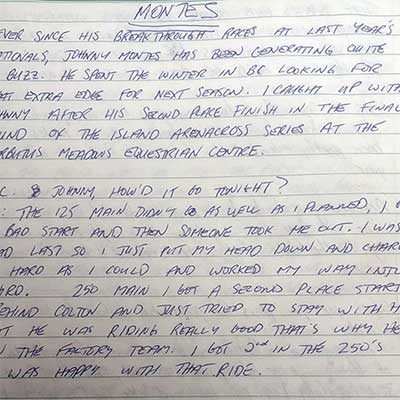 MONTES
EVER SINCE HIS BREAKTHROUGH RACES AT LAST YEAR'S
TIONALS, JOHNNY MONTES HAS BEEN GENERATING QUITE
BUZZ. HE SPENT THE WINTER IN BC LOOKING FOR
AT EXTRA EDGE FOR NEXT SEASON. I CAUGHT UP WITH
HNNY AFTER HIS SECOND PLACE FINISH IN THE FINAL
UND OF THE ISLAND ARENACROSS SERIES AT THE
RBUTUS MEADOWS EQUESTRIAN CENTRE.
C: JOHNNY, HOW'D IT GO TONIGHT?
: THE 125 MAIN DIDN'T GO AS WELL AS I PLANNED, I G
BAD START AND THEN SOMEONE TOOK ME OUT. I WAS
AD LAST SO I JUST PUT MY HEAD DOWN AND CHARG
HARD AS I COULD AND WORKED MY WAY INTO
RD. 250 MAIN I GOT A SECOND PLACE START
BEHIND COLTON AND JUST TRIED TO STAY WITH H
T HE WAS RIDING REALLY GOOD THAT'S WHY HE
N THE FACTORY TEAM. I GOT 2nd IN THE 250'S
WAS HAPPY WITH THAT RIDE.